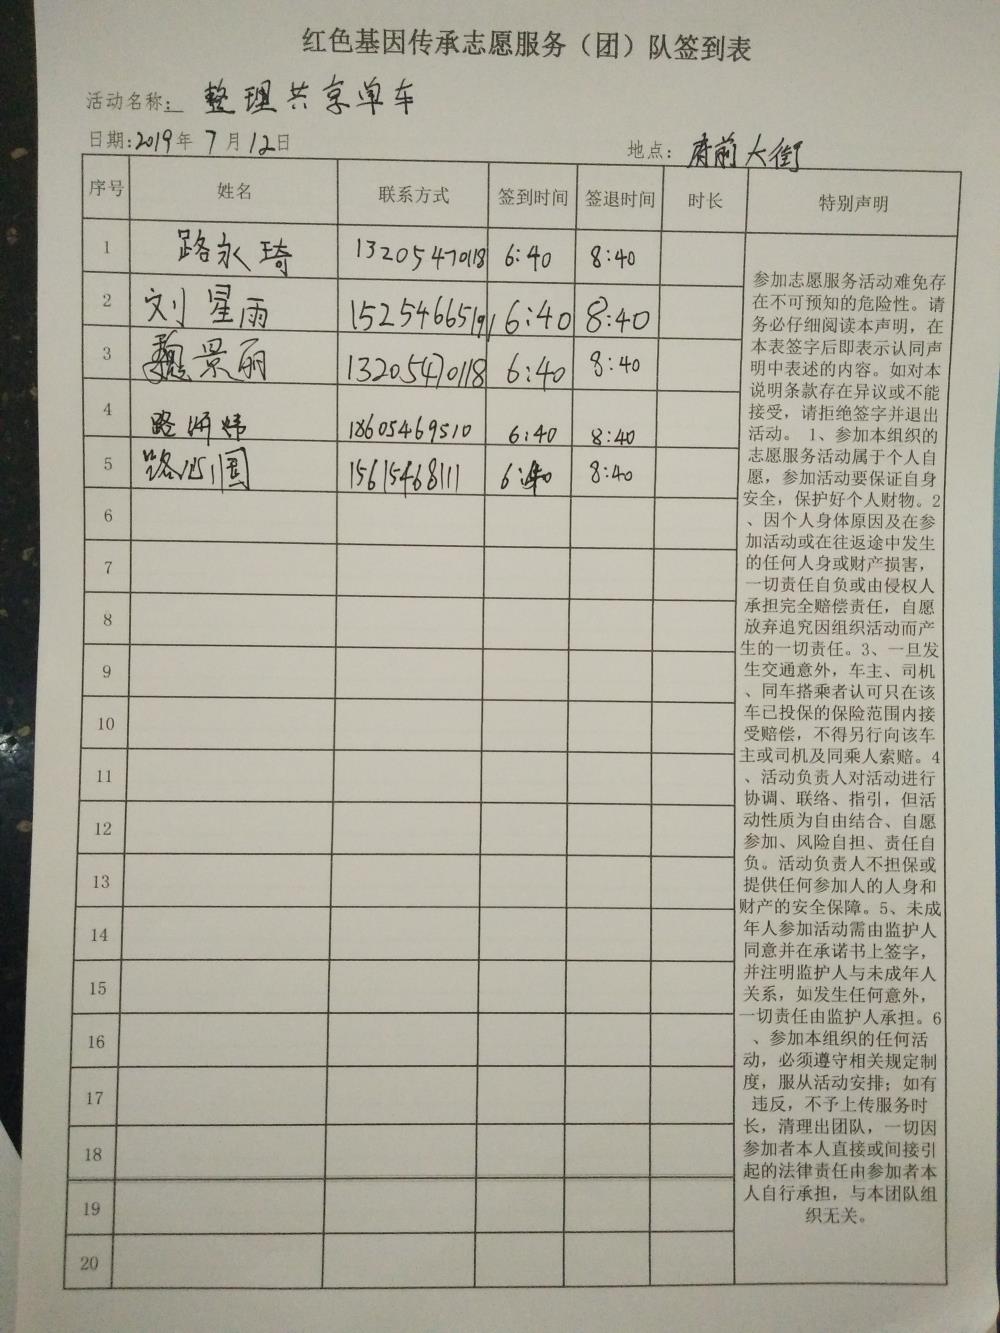 红色基因传承志愿服务（团）队签到表
活动名称：整理共享单车
日期:2019年7月12日 地点：府前大街
序号 姓名 联系方式 签到时间 签退时间 时长 特别声明
1 路永琦 13205470118 6:40 8:40
2 刘星雨 15254665191 6:40 8:40
3 魏景丽 13205470118 6:40 8:40
4 路妍炜 18605469510 6:40 8:40
5 路心圆 15615468111 6:40 8:40
6
7
8
9
10
11
12
13
14
15
16
17
18
19
20
参加志愿服务活动难免存
在不可预知的危险性。请
务必仔细阅读本声明，在
本表签字后即表示认同声
明中表述的内容。如对本
说明条款存在异议或不能
接受，请拒绝签字并退出
活动。 1、参加本组织的
志愿服务活动属于个人自
愿，参加活动要保证自身
安全，保护好个人财物。2
、因个人身体原因及在参
加活动或在往返途中发生
的任何人身或财产损害，
一切责任自负或由侵权人
承担完全赔偿责任，自愿
放弃追究因组织活动而产
生的一切责任。3、一旦发
生交通意外，车主、司机
、同车搭乘者认可只在该
车已投保的保险范围内接
受赔偿，不得另行向该车
主或司机及同乘人索赔。4
、活动负责人对活动进行
协调、联络、指引，但活
动性质为自由结合、自愿
参加、风险自担、责任自
负。活动负责人不担保或
提供任何参加人的人身和
财产的安全保障。5、未成
年人参加活动需由监护人
同意并在承诺书上签字，
并注明监护人与未成年人
关系，如发生任何意外，
一切责任由监护人承担。6
、参加本组织的任何活
动，必须遵守相关规定制
度，服从活动安排；如有
违反，不予上传服务时
长，清理出团队，一切因
参加者本人直接或间接引
起的法律责任由参加者本
人自行承担，与本团队组
织无关。